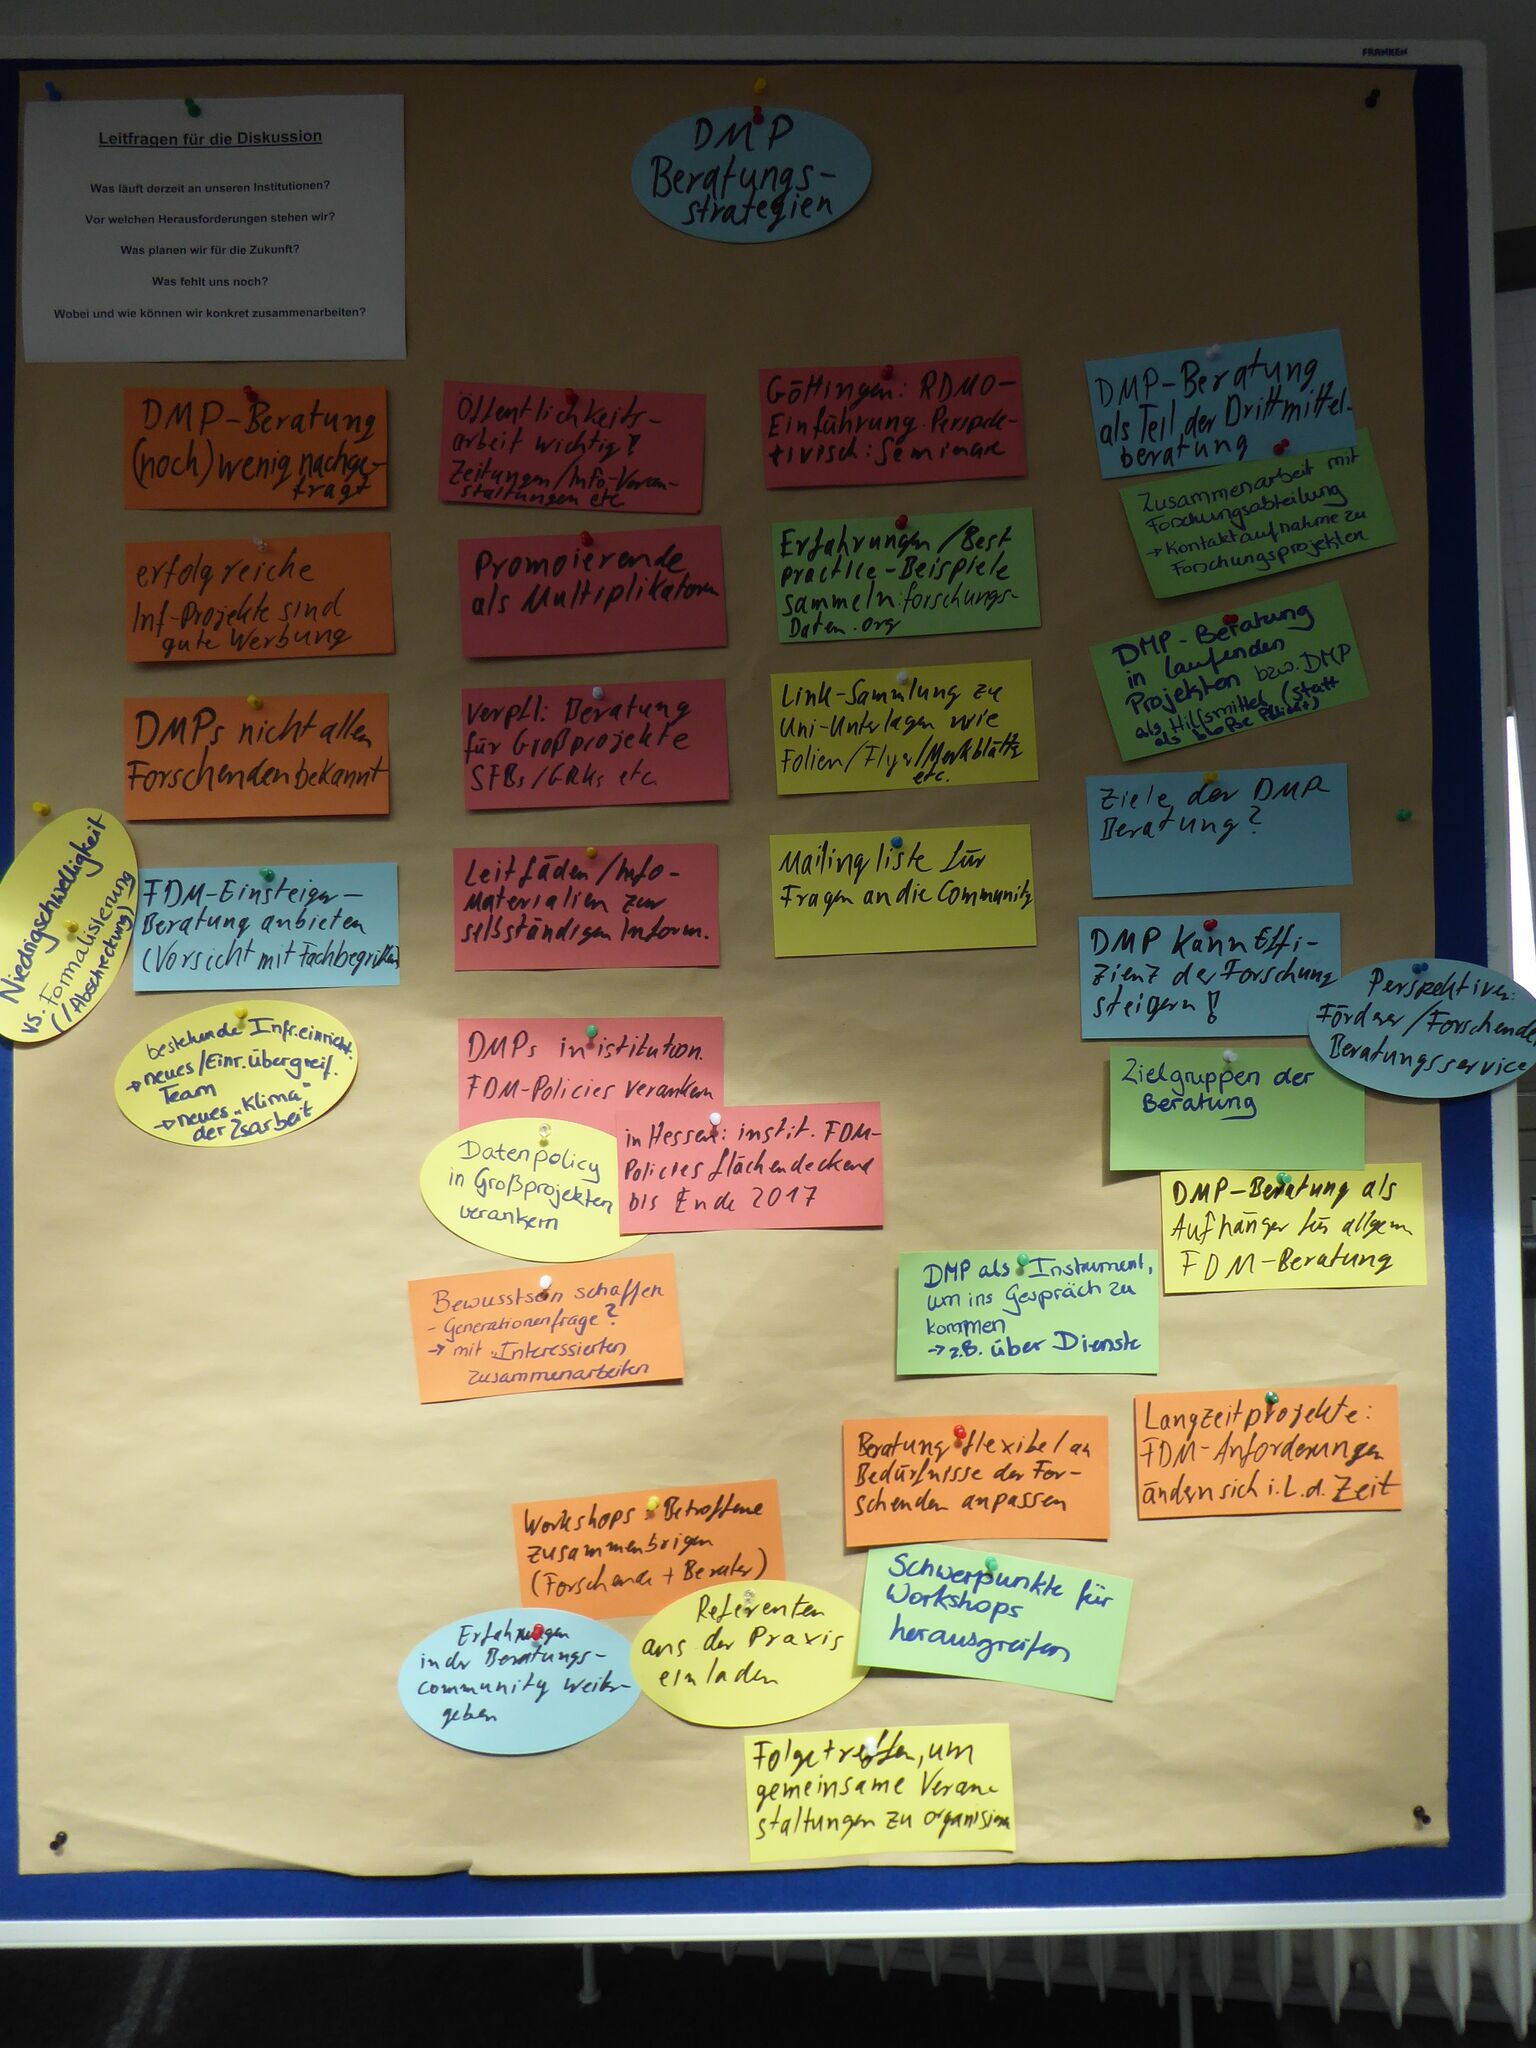 FRANKEN
Leitfragen für die Diskussion
Was läuft derzeit an unseren Institutionen?
Vor welchen Herausforderungen stehen wir?
Was planen wir für die Zukunft?
Was fehlt uns noch?
Wobei und wie können wir konkret zusammenarbeiten?
DMP
Beratungs-
strategien
DMP-Beratung
(noch) wenig nachge-
fragt
erfolgreiche
Inf-Projekte sind
gute Werbung
DMPs nicht allen
Forschenden bekannt
Niedrigschwelligkeit
vs. Formalisierung
(/Abschreckung)
FDM-Einsteiger-
Beratung anbieten
(Vorsicht mit Fachbegriffen)
bestehende Infr.einricht.
→ neues/Einr.übergreif.
Team
→ neues "Klima"
der Zsarbeit
Öffentlichkeits-
arbeit wichtig!
Zeitungen/Info-Veran-
staltungen etc
Promovierende
als Multiplikatoren
Verpfl: Beratung
für Großprojekte
SFBs/GRKs etc.
Leitfäden/Info-
Materialien zur
selbständigen Inform.
DMPs in istitution.
FDM-Policies verankern
Datenpolicy
in Großprojekten
verankern
in Hessen: instit. FDM-
Policies flächendeckend
bis Ende 2017
Bewusstsein schaffen
- Generationenfrage?
→ mit "Interessierten
zusammenarbeiten
Workshops: Betroffene
zusammenbrigen
(Forschende + Berater)
Erfahrungen
in der Beratungs-
community weiter-
geben
Referenten
aus der Praxis
einladen
Göttingen: RDMO-
Einführung. Perspek-
tivisch: Seminare
Erfahrungen/Best
practice-Beispiele
sammeln: forschungs-
Daten.org
Link-Sammlung zu
Uni-Unterlagen wie
Folien/Flyer/Merkblätter
etc.
Mailingliste für
Fragen an die Community
DMP-Beratung
als Teil der Drittmittel-
beratung
Zusammenarbeit mit
Forschungsabteilung
→ Kontaktaufnahme zu
Forschungsprojekten
DMP-Beratung
in laufenden
Projekten bzw. DMP
als Hilfsmittel (statt
als bloße Pflicht)
Ziele der DMP
Beratung?
DMP kann Effi-
zienz der Forschung
steigern!
Perspektiven:
Förderer/Forschende
Beratungsservice
Zielgruppen der
Beratung
DMP-Beratung als
Aufhänger für allgem
FDM-Beratung
DMP als Instrument,
um ins Gespräch zu
kommen
→ z.B. über Dienste
Langzeitprojekte:
FDM-Anforderungen
ändern sich i.L.d. Zeit
Beratung flexibel an
Bedürfnisse der For-
schenden anpassen
Schwerpunkte für
Workshops
herausgreifen
Folgetreffen, um
gemeinsame Veran-
staltungen zu organisieren